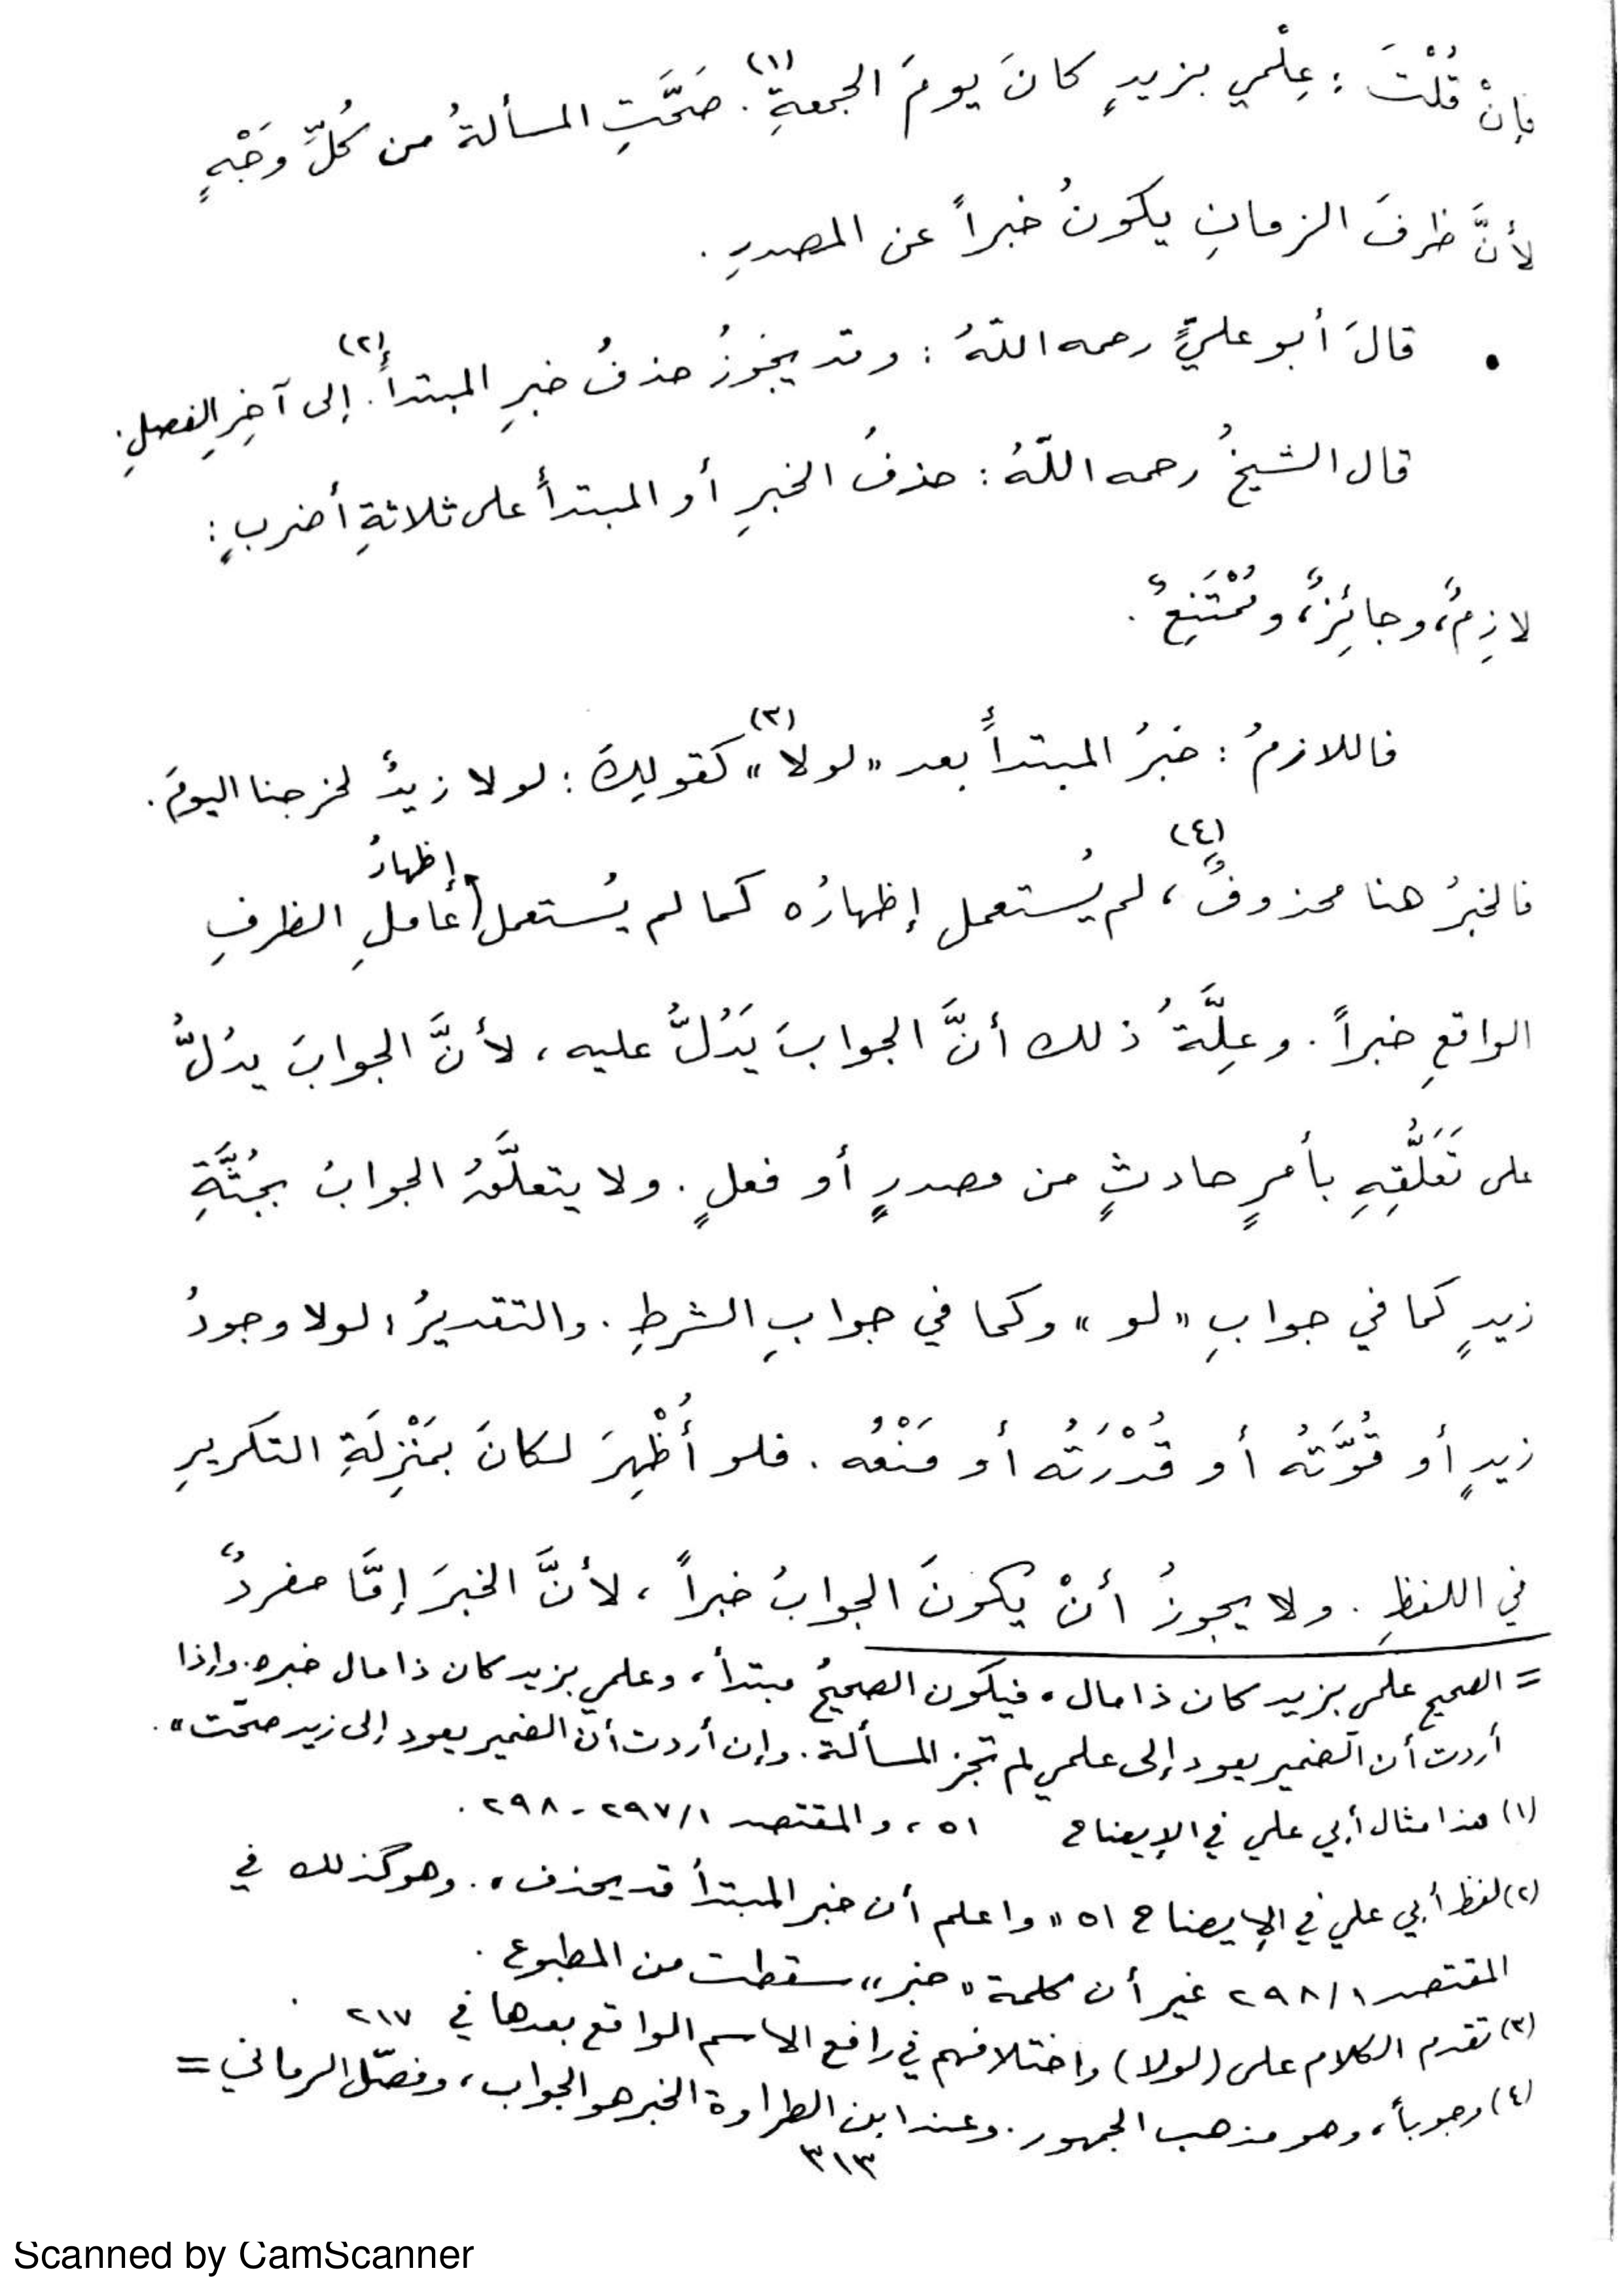 فإنْ قُلْتَ : عِلْمي بزيدٍ كانَ يومَ الجمعةِ(١) . صَحَّتِ المسألةُ من كُلِّ وَجْهٍ
لأنَّ ظرفَ الزمانِ يكونُ خبراً عن المصدرِ .
• قالَ أبو عليٍّ رحمه اللّهُ : وقد يجُوزُ حذفُ خبرِ المبتدأِ(٢) . إلى آخِرِ الفصلِ .
قال الشيخُ رحمه اللّهُ : حذفُ الخبرِ أو المبتدأ على ثلاثةِ أضربٍ :
لازِمٌ، وجائِزٌ، ومُمْتَنِعٌ .
فاللازمُ : خبرُ المبتدأِ بعد «لولا»(٣) كَقولِكَ : لولا زيدٌ لخرجنا اليومَ .
فالخبرُ هنا محذوفٌ(٤) ، لم يُستعمل إظهارُه كما لم يُستعمل إظهارُ عاملِ الظرفِ
الواقعِ خبراً . وعِلَّةُ ذلك أنَّ الجوابَ يَدُلُّ عليه ، لأنَّ الجوابَ يدُلُّ
على تَعَلُّقِهِ بأمرٍ حادثٍ من مصدرٍ أو فعلٍ . ولا يتعلَّقُ الجوابُ بجُثَّةِ
زيدٍ كما في جوابِ «لو» وكما في جوابِ الشرطِ . والتقديرُ : لولا وجودُ
زيدٍ أو قُوَّتهُ أو قُدْرَتُه أو مَنْعُه . فلو أُظْهِرَ لكانَ بمَنْزِلَةِ التكريرِ
في اللفظِ . ولا يجوزُ أنْ يكونَ الجوابُ خبراً ، لأنَّ الخبرَ إمَّا مفردٌ
= الصحيح علمي بزيد كان ذا مال ، فيكون الصحيحُ مبتدأ ، وعلمي بزيد كان ذا مال خبره . وإذا
أردت أن الضمير يعود إلى علمي لم تجز المسألة . وإن أردت أن الضمير يعود إلى زيد صحّت» .
(١) هذا مثال أبي علي في الإيضاح ٥١ ، والمقتصد ٢٩٧/١ - ٢٩٨ .
(٢) لفظ أبي علي في الإيضاح ٥١ «واعلم أن خبر المبتدأ قد يحذف» . وهو كذلك في
المقتصد ٢٩٨/١ غير أن كلمة «خبر» سقطت من المطبوع .
(٣) تقدم الكلام على (لولا) واختلافهم في رافع الاسم الواقع بعدها في ٢١٧ .
(٤) وجوباً ، وهو مذهب الجمهور . وعند ابن الطراوة الخبر هو الجواب ، وفصّل الرماني =
٣١٣
Scanned by CamScanner